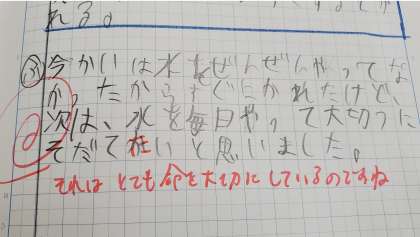 れる。
③今かいは水をぜんぜんやってな
かったからすぐにかれたけど、
次は、水を毎日やって大切に
そだてたいと思いました。
それは とても命を大切にしているのですね